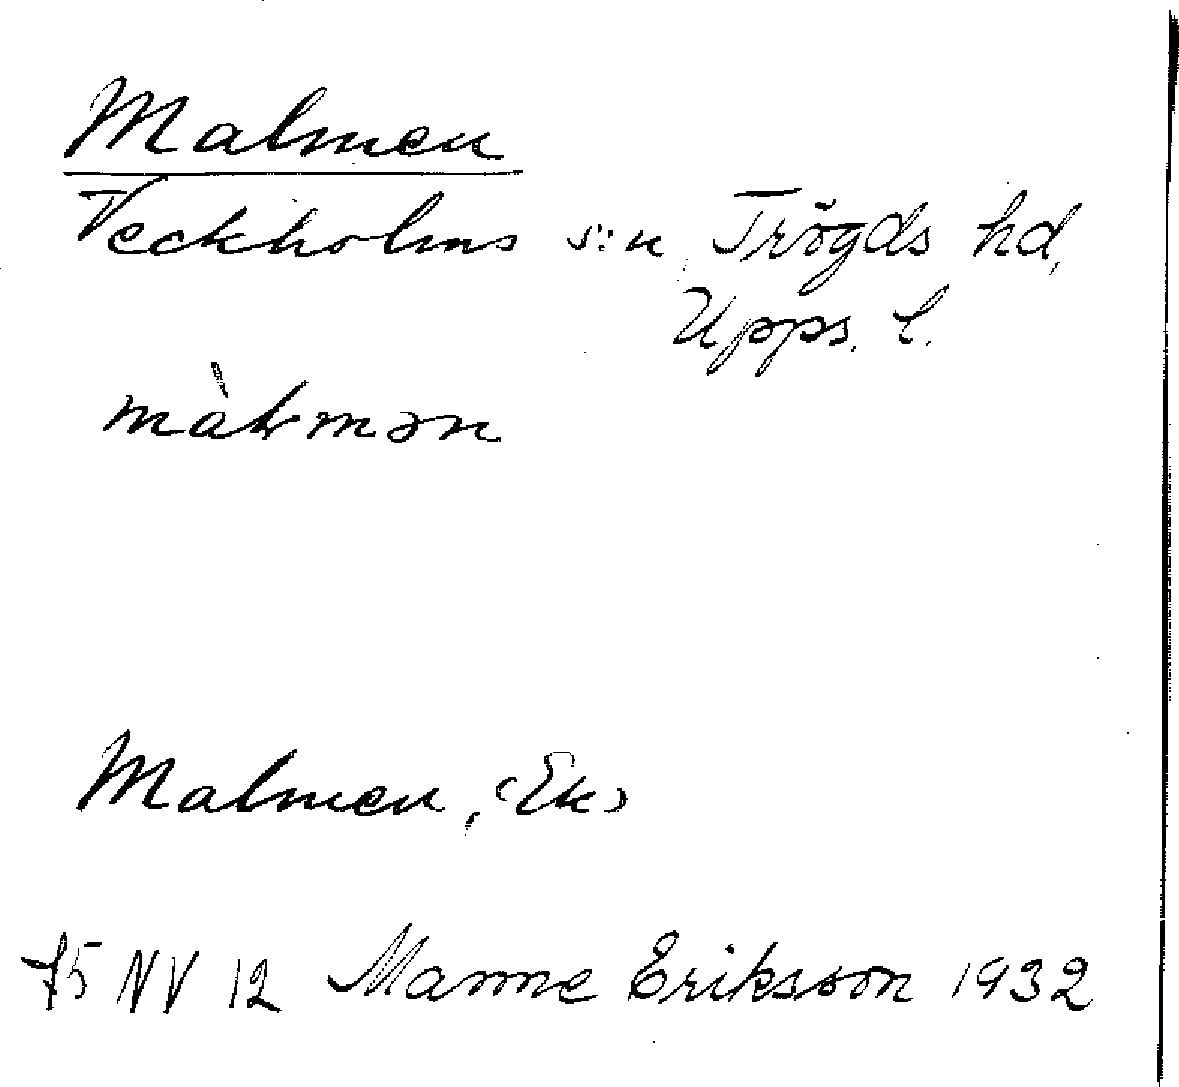 Malmen
Veckholms s:n, Trögds hd,
Upps. l.
màlmən
Malmen, (Ek)
75 NV 12 Manne Eriksson 1932